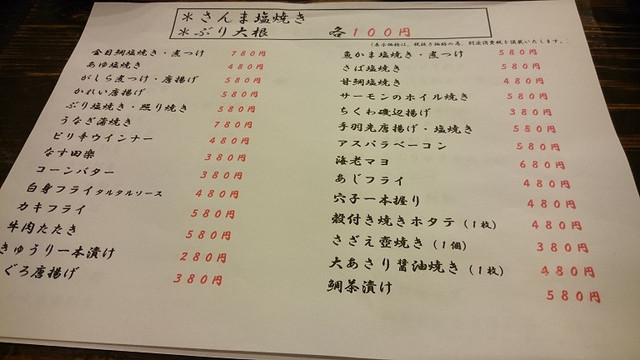 ＊さんま塩焼き
＊ぶり大根 各100円
(表示価格は、税抜き価格の為、別途消費税を頂戴いたします。)
金目鯛塩焼き・煮つけ 780円
あゆ塩焼き 480円
がしら煮つけ・唐揚げ 580円
かれい唐揚げ 580円
ぶり塩焼き・照り焼き 580円
うなぎ蒲焼き 780円
ピリ辛ウインナー 480円
なす田楽 380円
コーンバター 380円
白身フライタルタルソース 480円
カキフライ 580円
牛肉たたき 580円
きゅうり一本漬け 280円
ぐろ唐揚げ 380円
魚かま塩焼き・煮つけ 580円
さば塩焼き 580円
甘鯛塩焼き 480円
サーモンのホイル焼き 580円
ちくわ磯辺揚げ 380円
手羽先唐揚げ・塩焼き 580円
アスパラベーコン 580円
海老マヨ 680円
あじフライ 480円
穴子一本握り 480円
殻付き焼きホタテ(1枚) 480円
さざえ壺焼き(1個) 380円
大あさり醤油焼き(1枚) 480円
鯛茶漬け 580円